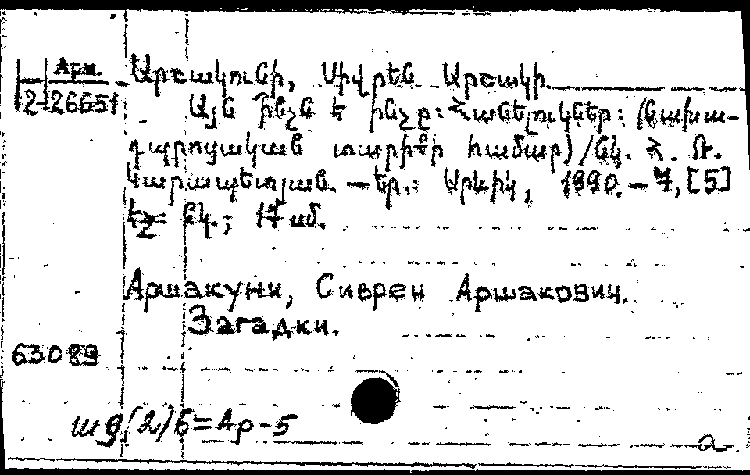 Арм.
2-26651
Արշակունի, Սիվրեն Արշակի
Այն ինչն է ինչը: Հանելուկներ: (Նախա-
դպրոցական տարիքի համար) /Նկ. Հ. Թ.
Կարապետյան. — Եր.: Արևիկ, 1990. — 7, [5]
էջ: նկ.; 17 սմ.
Аршакуни, Сиврен Аршакович.
Загадки.
63089
ШД(2)6=Ар-5
а